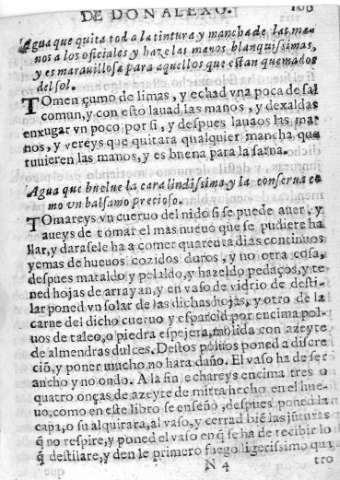 DE DON ALEXO. 103
Agua que quita toda la tintura y mancha de las ma-
nos a los oficiales y haze las manos blanquissimas,
y es marauillosa para aquellos que estan quemados
del sol.
TOmen çumo de limas, y echad vna poca de sal
comun, y con esto lauad las manos, y dexaldas
enxugar vn poco por si, y despues lauaos las ma-
nos, y vereys que quitara qualquier mancha, que
tuuieren las manos, y es buena para la sarna.
Agua que buelue la cara lindissima y la conserua co
mo vn balsamo precioso.
TOmareys vn cueruo del nido si se puede auer, y
aueys de tomar el mas nueuo que se pudiere ha
llar, y darasele ha a comer quarenta dias continuos
yemas de hueuos cozidos duros, y no otra cosa,
despues mataldo y pelaldo, y hazeldo pedaços, y te
ned hojas de arrayan, y en vaso de vidrio de desti-
lar poned vn solar de las dichas hojas, y otro de la
carne del dicho cueruo y esparcid por encima pol-
uos de talco, o piedra espejera, molida con azeyte
de almendras dulces. Destos poluos poned a discre
ciõ, y poner mucho no hara daño. El vaso ha de ser
ancho y no ondo. A la fin echareys encima tres o
quatro onças de azeyte de mirra hecho en el hue-
uo, como en este libro se enseño, despues poned la
capa, o su alquitara, al vaso, y cerrad biē las junturas
q̃ no respire, y poned el vaso en q̃ se ha de recibir lo
q̃ destilare, y den le primero fuego ligerissimo qua
N 4 tro